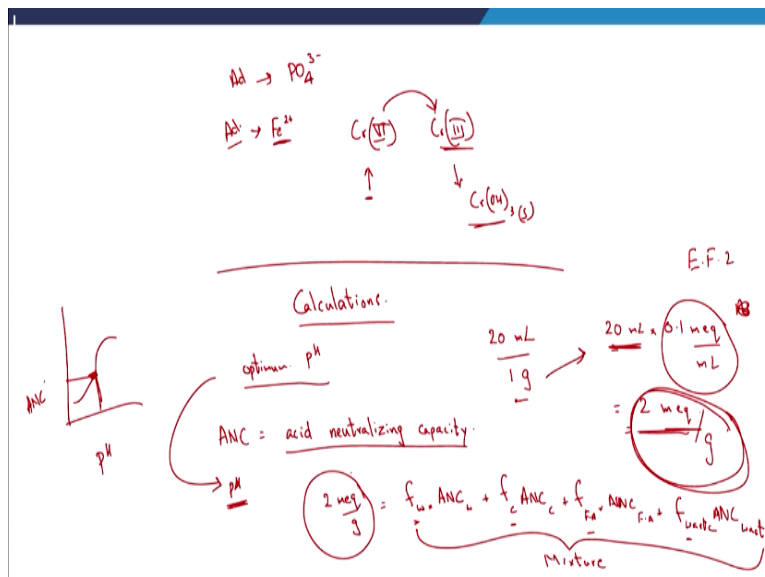 Ad → PO₄³⁻
Ad. → Fe²⁺ Cr(VI) Cr(III)
↓
Cr(OH)₃(s)
E.F.2
Calculations.
optimum pH
20 mL / 1 g → 20 mL × 0.1 meq/mL
= 2 meq/g
ANC
pH
ANC = acid neutralizing capacity.
pH
2 meq/g = f_w. ANC_w + f_c ANC_c + f_F.A. ANC_F.A + f_waste ANC_wast
Mixture